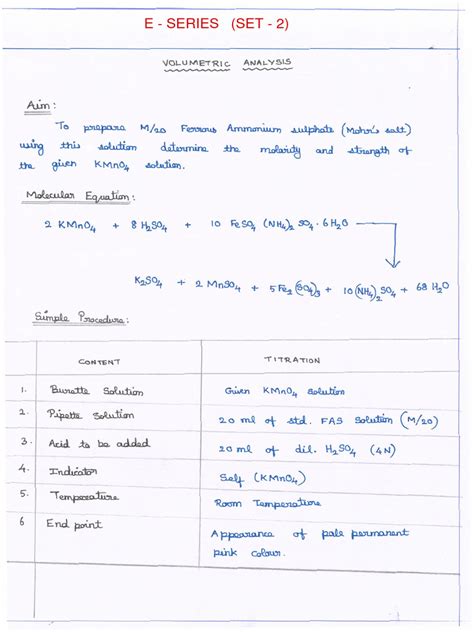 E - SERIES (SET - 2)
VOLUMETRIC ANALYSIS
Aim :
To prepare M/20 Ferrous Ammonium sulphate (Mohr's salt)
using this solution determine the molarity and strength of
the given KMnO4 solution.
Molecular Equation :
2 KMnO4 + 8 H2SO4 + 10 FeSO4 (NH4)2 SO4 · 6H2O
K2SO4 + 2 MnSO4 + 5 Fe2 (SO4)3 + 10 (NH4)2 SO4 + 68 H2O
Simple Procedure :
CONTENT TITRATION
1. Burette Solution Given KMnO4 solution
2. Pipette solution 20 ml of std. FAS Solution (M/20)
3. Acid to be added 20 ml of dil. H2SO4 (4N)
4. Indicator Self (KMnO4)
5. Temperature Room Temperature
6 End point Appearance of pale permanent
pink colour.